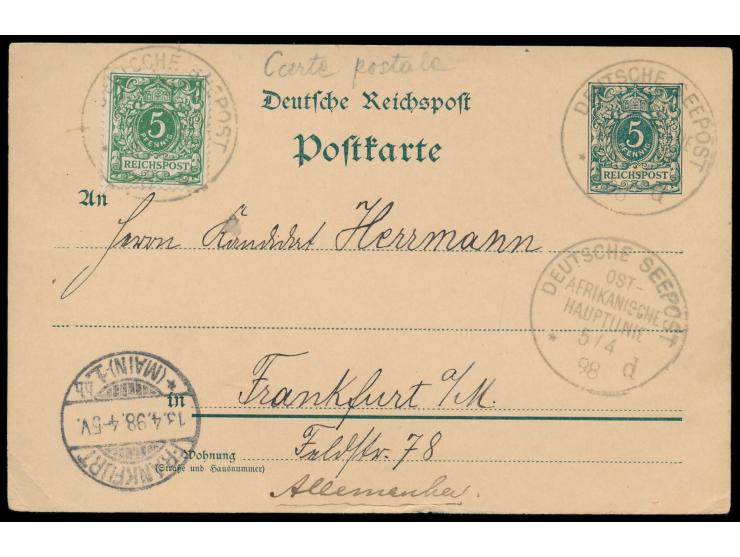 Carte postale
Deutsche Reichspost
Postkarte
DEUTSCHE SEEPOST
5
PFENNIG
REICHSPOST
DEUTSCHE SEEPOST
d
5
PFENNIG
REICHSPOST
An
Herrn Kandidat Herrmann
DEUTSCHE SEEPOST
OST-
AFRIKANISCHE
HAUPTLINIE
5/4
98 d
in Frankfurt a/M.
Feldstr. 78
Wohnung
(Straße und Hausnummer)
FRANKFURT
13.4.98.4-5V.
(MAIN)-1.
bb